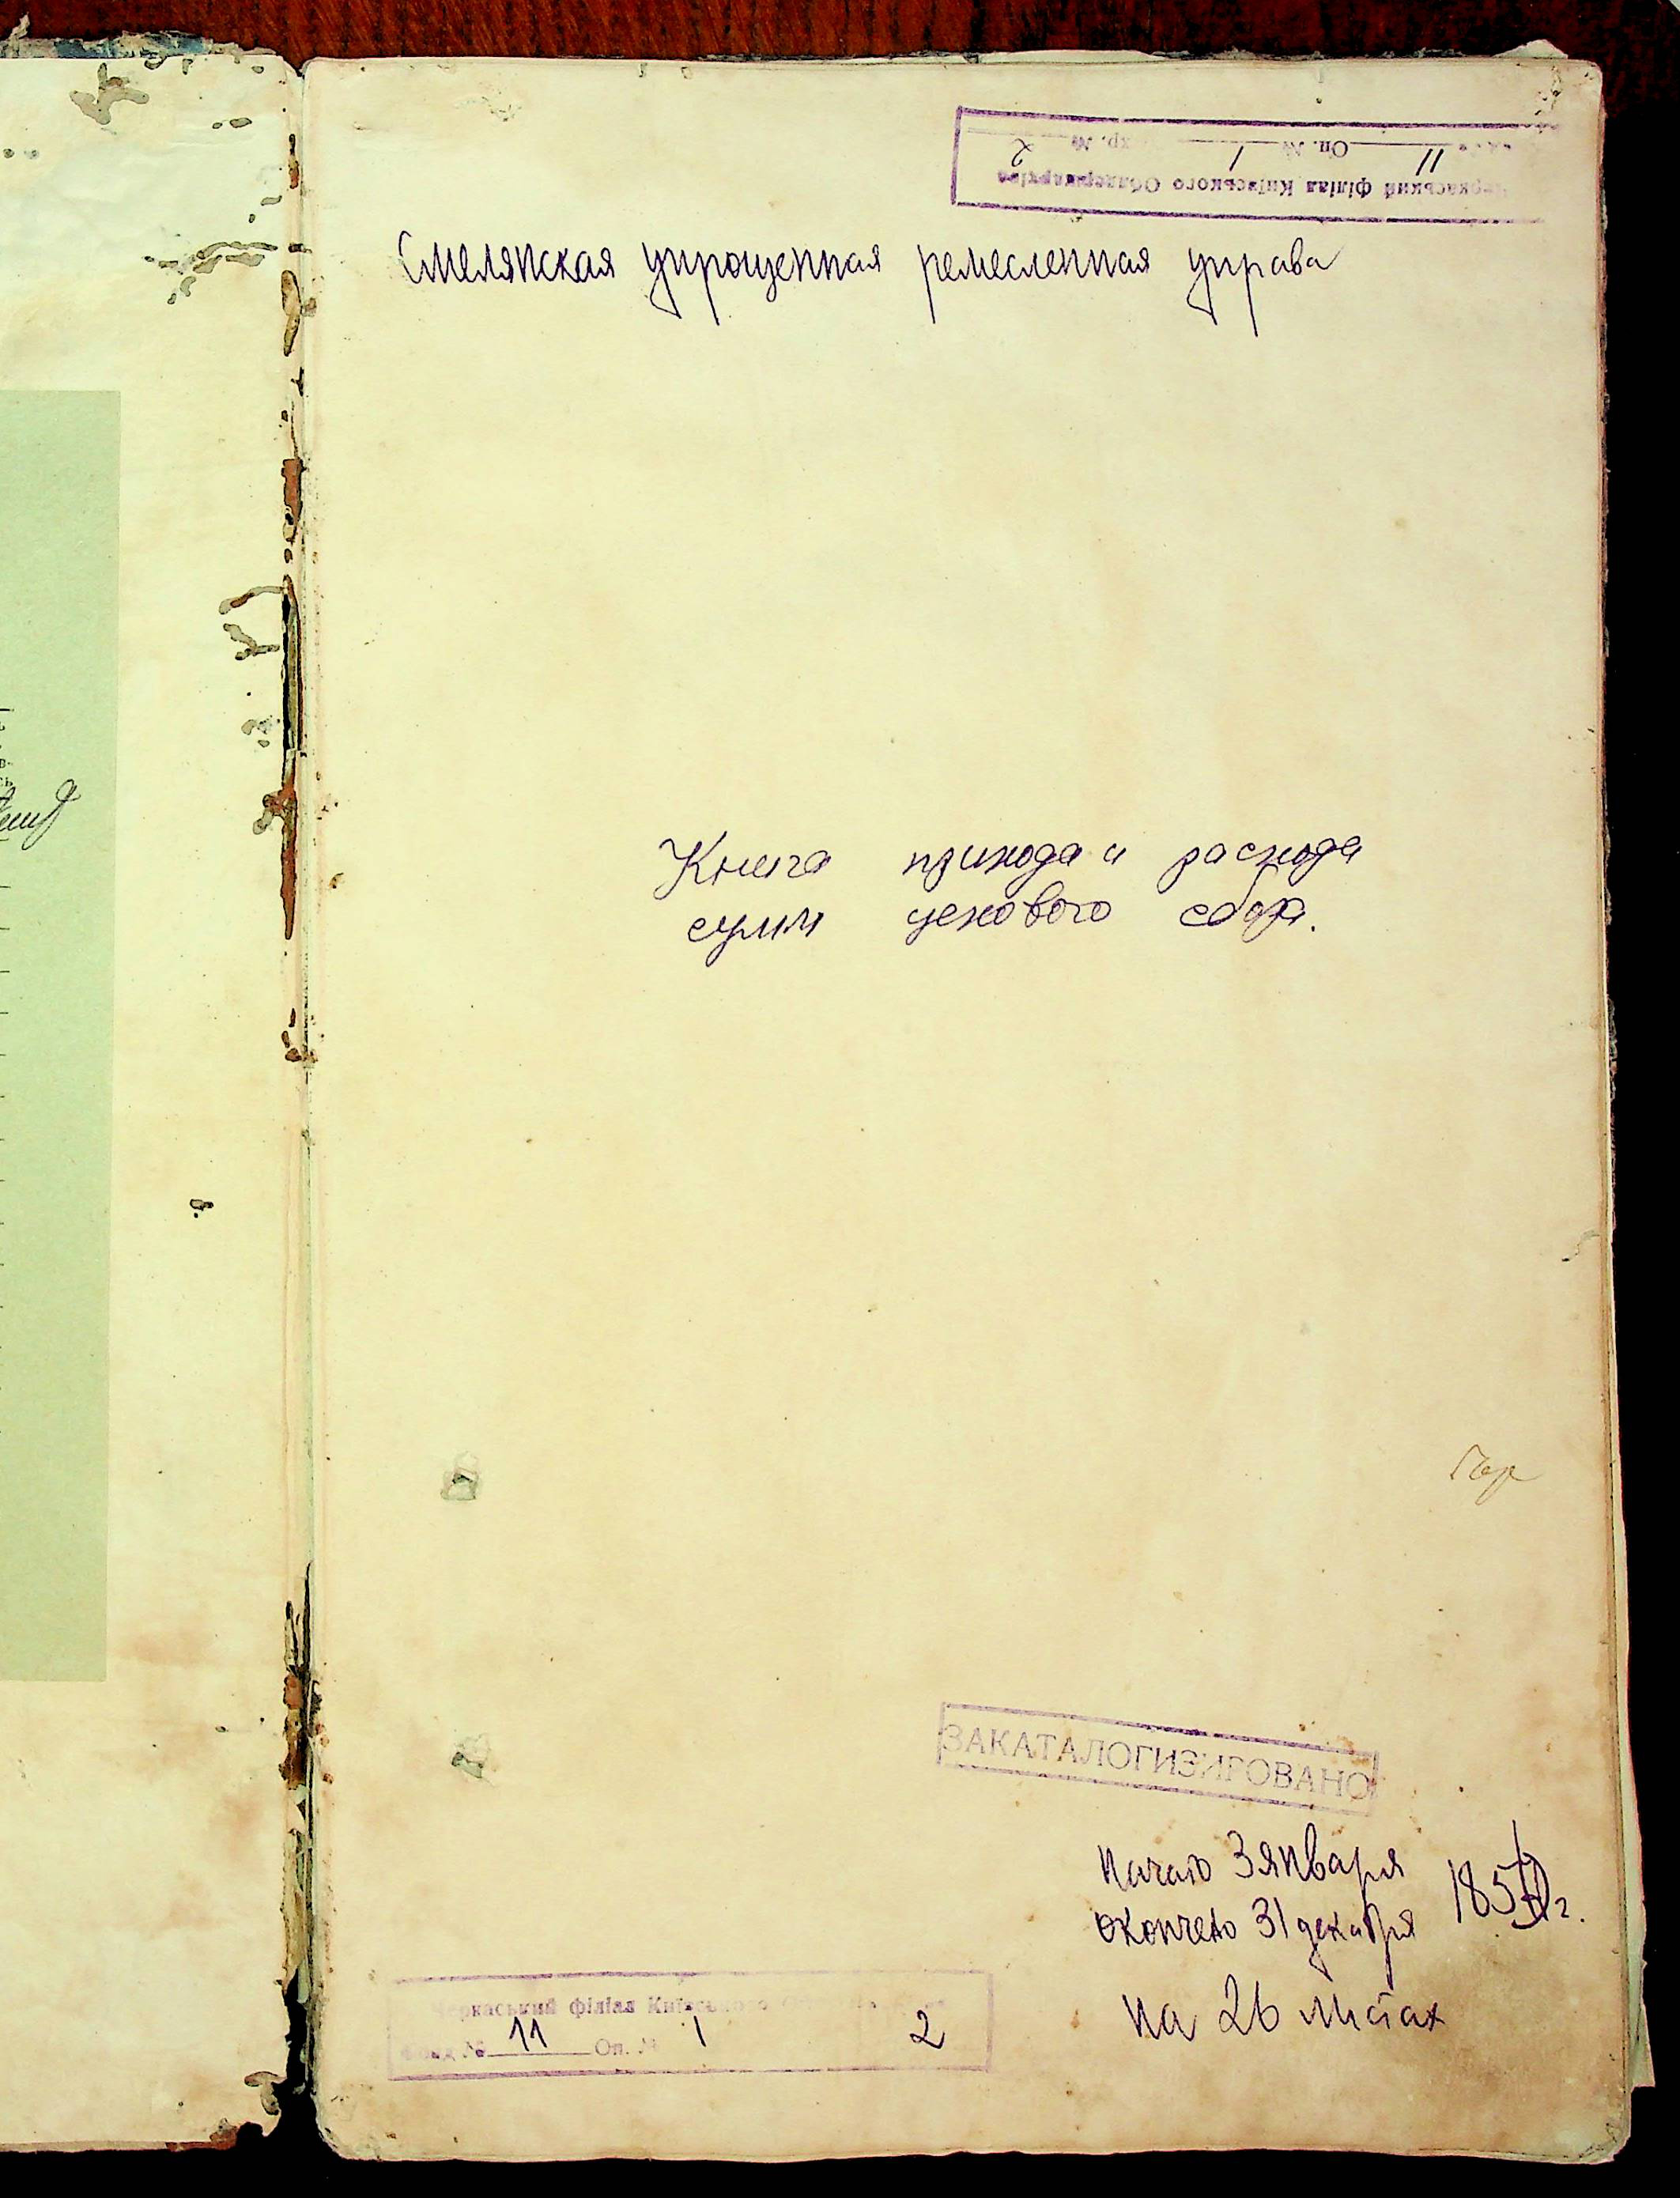 Черкаський філіал Київського Облдержархіву
11 Оп. № 1 хр. № 2
Смелянская упрощенная ремесленная управа
Книга прихода и расхода
сумм цехового сбора.
ЗАКАТАЛОГИЗИРОВАНО
начато 3 января
окончено 31 декабря
на 26 листах
Черкаський філіал
Фонд № 11 Оп. № 1 2